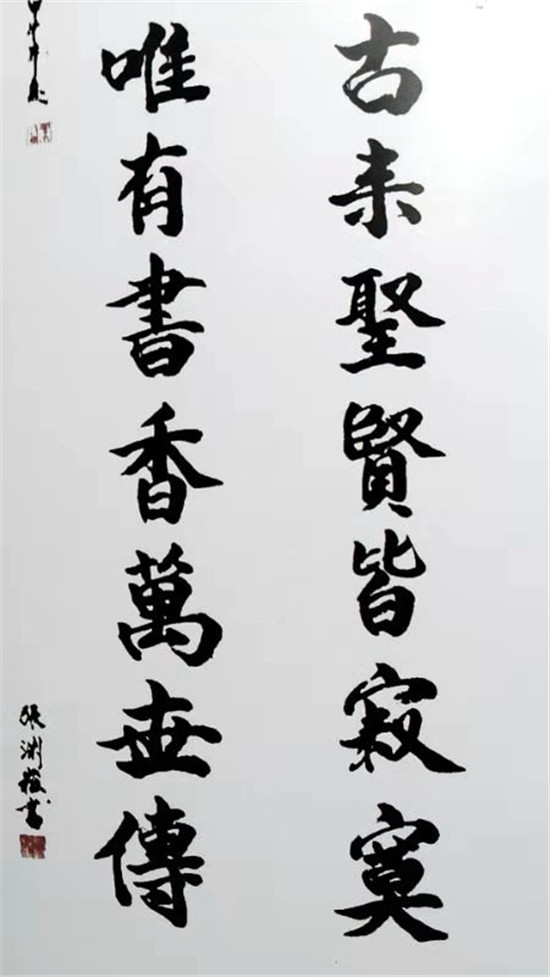 古来聖賢皆寂寞
唯有書香萬世傳
張渊
書